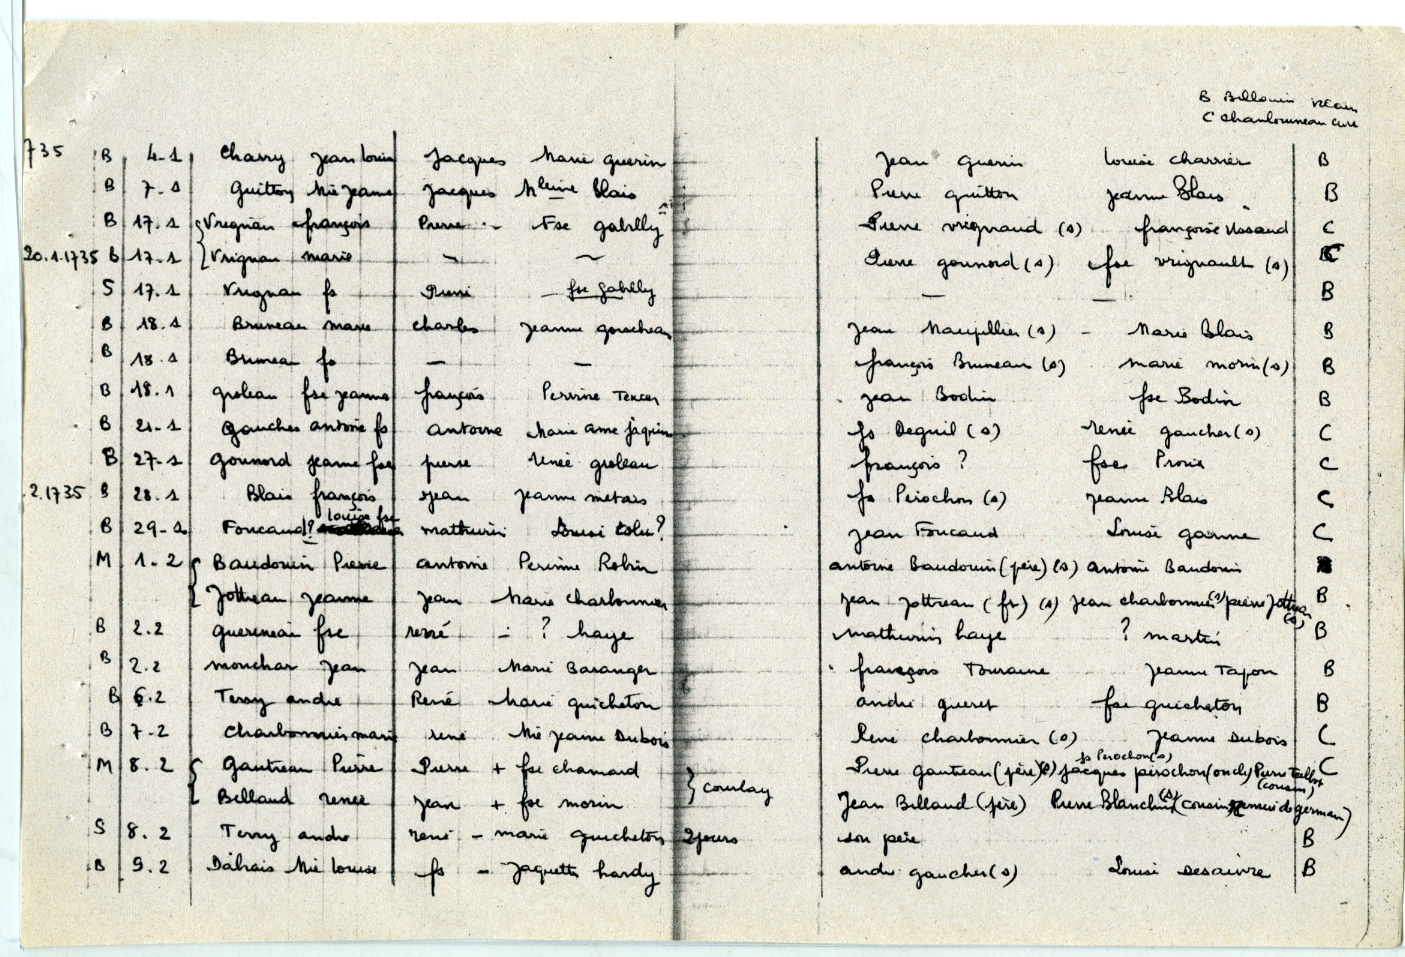 B Billouin vicaire
C Charbonneau curé
735 B 4-1 Charry jean louis jacques Marie guerin jean guerin louise charrier B
B 7-1 Guitton Mie jeanne jacques Mleine blais Pierre guitton jeanne Blais B
B 17.1 Vregnau françois Pierre - Fse gabilly Pierre vregnaud (s) françoise C
20.1.1735 B 17.1 Vrignau marie - - Pierre gounord (s) fse vrignault (s) C
S 17.1 Vrignau fs Pierre - fse gabilly - - B
B 18.1 Bruneau marie charles jeanne jean Maupillier (s) - Marie Blais B
B 18.1 Bruneau fs - - françois Bruneau (s) marie morin (s) B
B 18.1 groleau fse jeanne françois Perrine Texier jean Bodin fse Bodin B
B 21-1 Gaucher antoine fs antoine Marie anne jaquin fs Deguil (s) renée gaucher (s) C
B 27-1 gounord jeanne fse pierre renée groleau françois ? fse Proux C
.2.1735 B 28.1 Blais françois jean jeanne metais fs Perochon (s) jeanne Blais C
B 29-1 Foucaud ? louise fse mathurin Louise ? jean Foucaud Louise garnne C
M 1.2 Baudouin Pierre antoine Perinne Robin antoine Baudouin (père) (s) antoine Baudouin
jottreau jeanne jean Marie charbonnier jean jottreau (fr) (s) jean charbonnier (s) pierre jottreau (s) B
B 2.2 guereneau fse rené - ? haye mathurin haye ? martin B
B 2.2 mouchar jean jean Marie Baranger françois Touraine jeanne Tapon B
B 6.2 Terry andre René Marie guicheton andré gueret fse guicheton B
B 7-2 Charbonnier marie rené Mie jeanne Dubois René charbonnier (s) jeanne Dubois C
fs Perochon (s)
M 8.2 Gautreau Pierre Pierre + fse chamard courlay Pierre gautreau (père) (s) jacques perochon (oncle) Pierre Talbot (cousin) C
Billaud renée jean + fse morin Jean Billaud (père) Pierre Blanchin (s) (cousin remué de germain)
S 8.2 Terry andre rené - marie guicheton 2 jours son père B
B 9.2 Dahais Mie louise fs - jaquette hardy andré gaucher (s) Louise Desaivre B